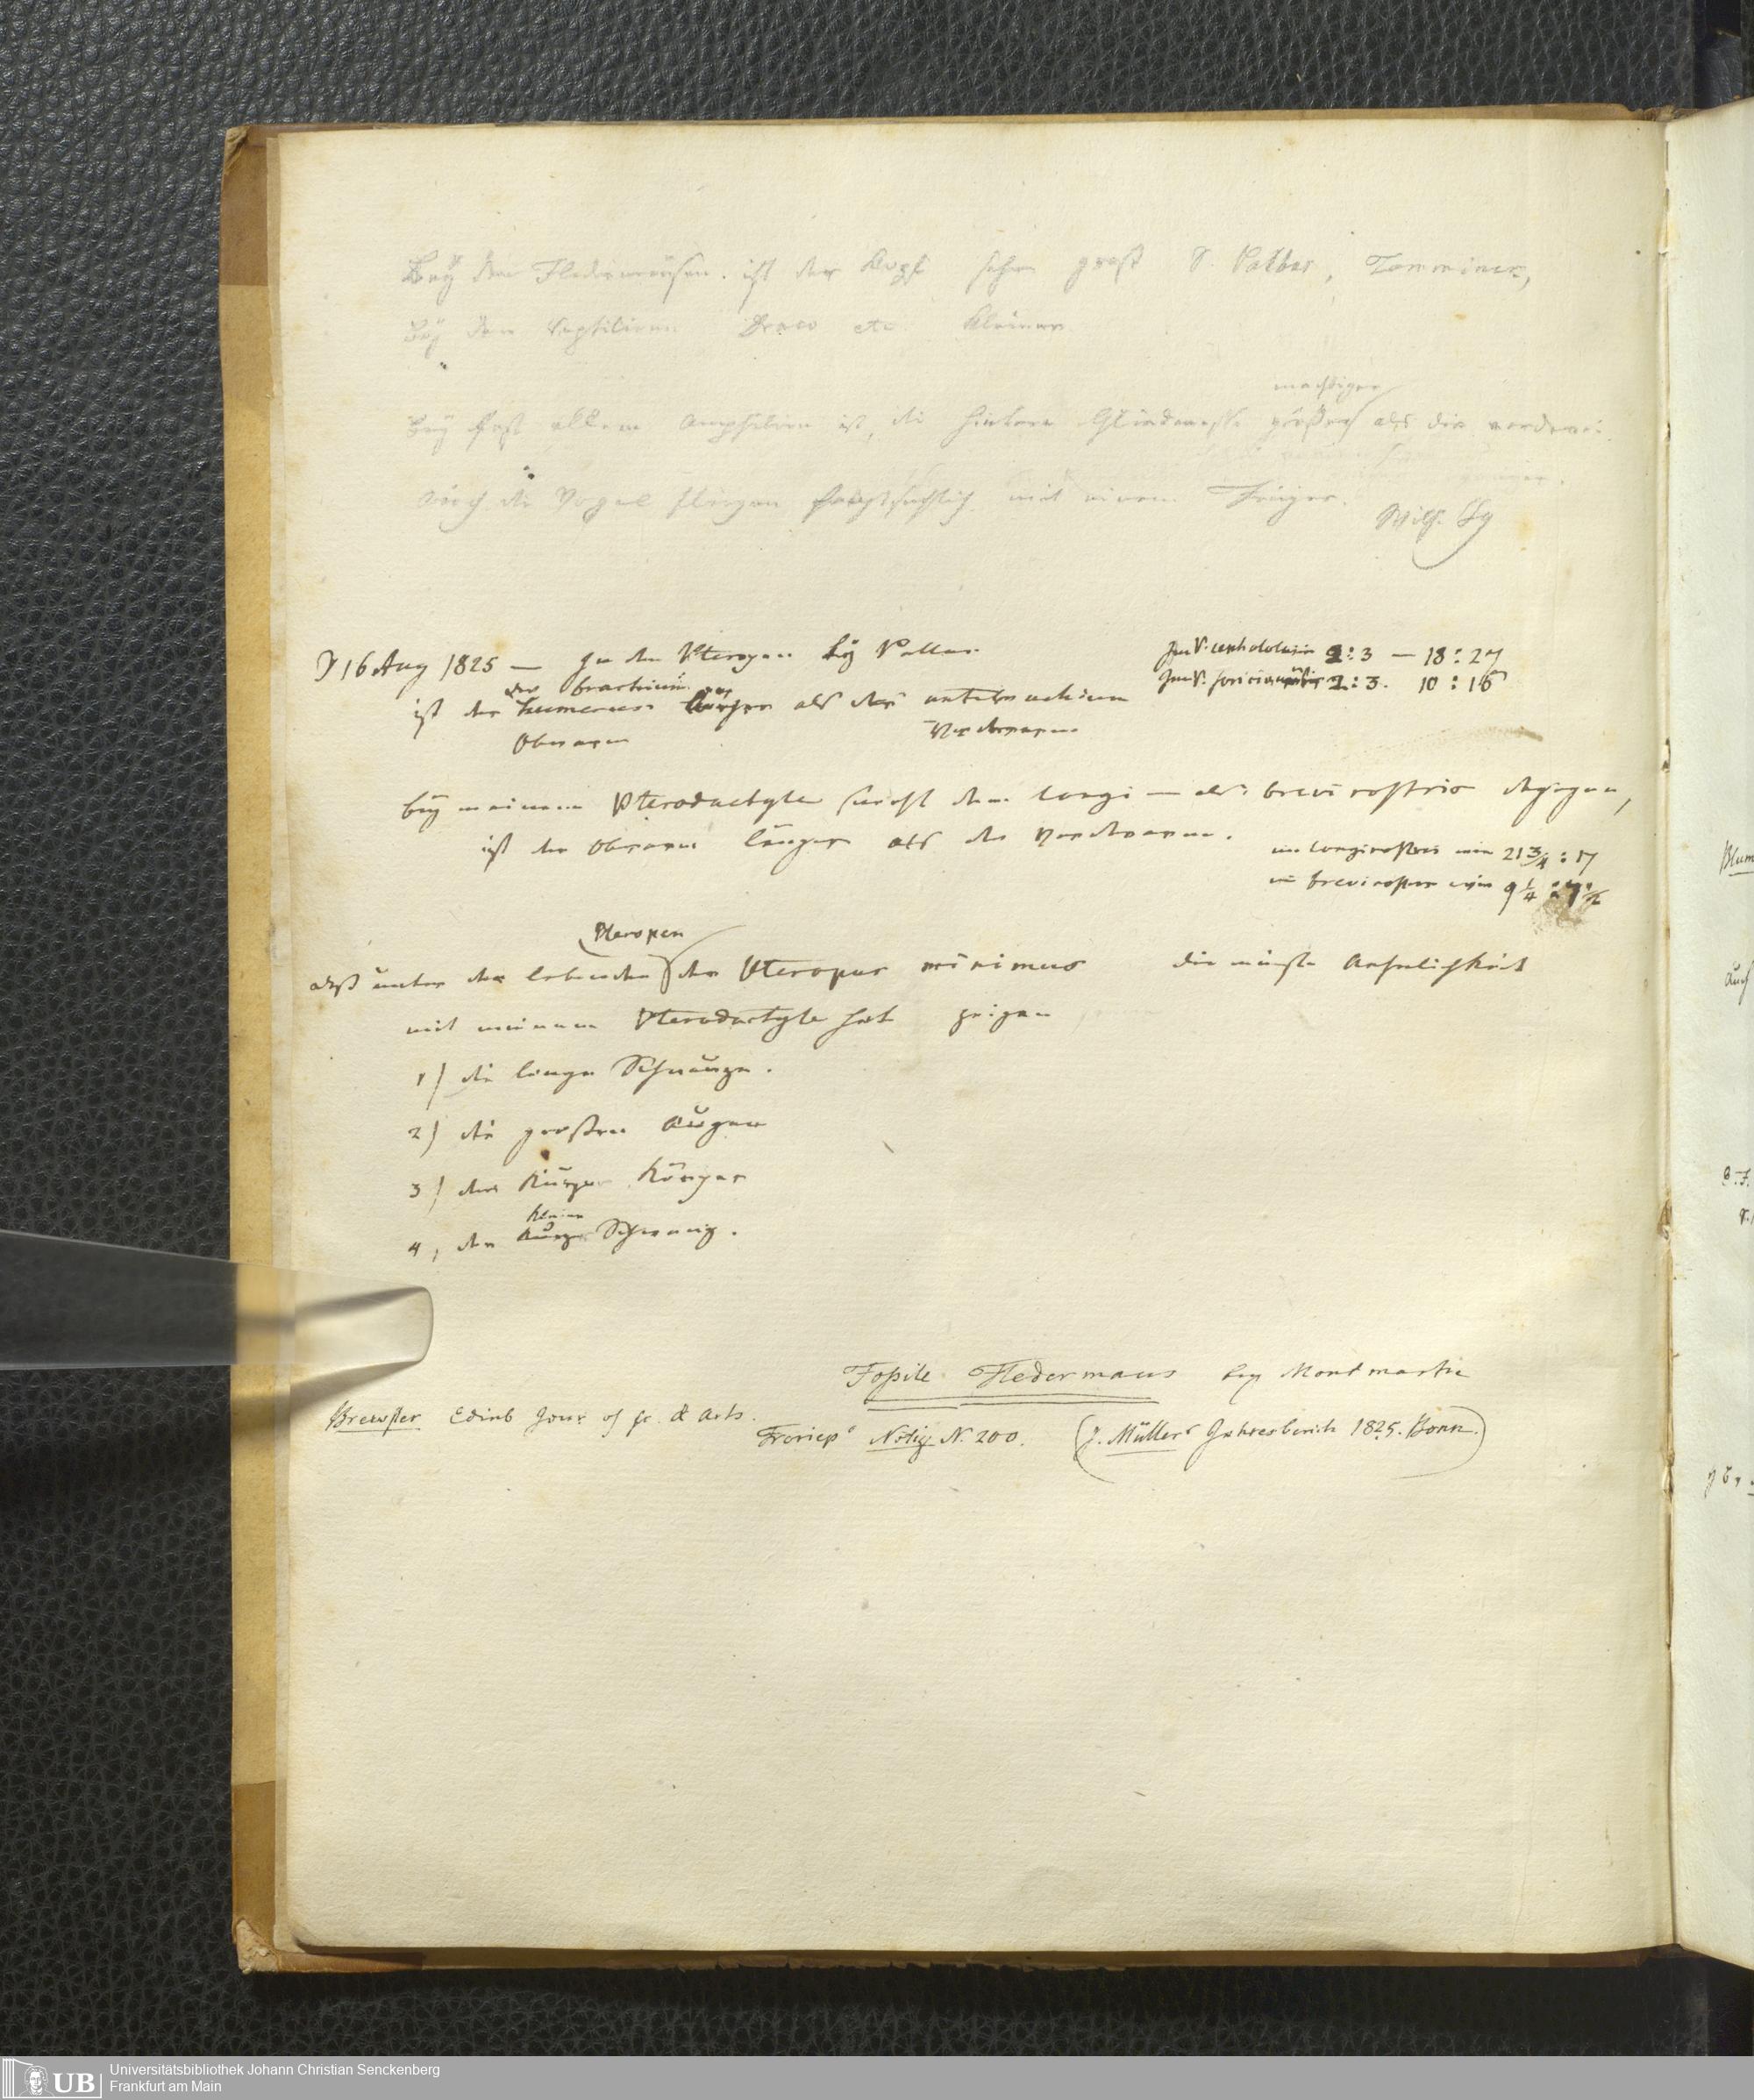 Bey den Fledermäusen ist der Kopf sehr groß S. Pallas, Temminck,
Bey den Reptilien Draco etc. kleiner
mächtiger
Bey fast allen Amphibien ist die hintere größer als die vordere
Auch die Vögel fliegen hauptsächlich mit einem Finger.
D 16 Aug 1825 — In den Pteropen bey Pallas
Im V. cephalotes 2:3 — 18:27
das brachium
Im V. soricinus 2:3. 10:15
ist der humerus kürzer als das antibrachium
Oberarm Vorderarm
bey meinem Pterodactyle sowohl dem longi — als brevirostris dagegen,
ist der Oberarm länger als der Vorderarm.
im longirostris wie 21 3/4 : 17
im brevirostris wie 9 1/4 :
Pteropen
daß unter den lebenden der Pteropus minimus die meiste Aehnlichkeit
mit meinem Pterodactyle hat zeigen
1) die lange Schnauze.
2) die großen Augen
3) der kurze Körper
kleine
4, der kurze Schwanz.
Foßile Fledermaus bey Montmartre
Brewster Edinb Jour of sc. & Arts.
Froriep's Notiz N. 200. (J. Müllers Jahresbericht 1825. Bonn.)
Blum
auch
UB
Universitätsbibliothek Johann Christian Senckenberg
Frankfurt am Main